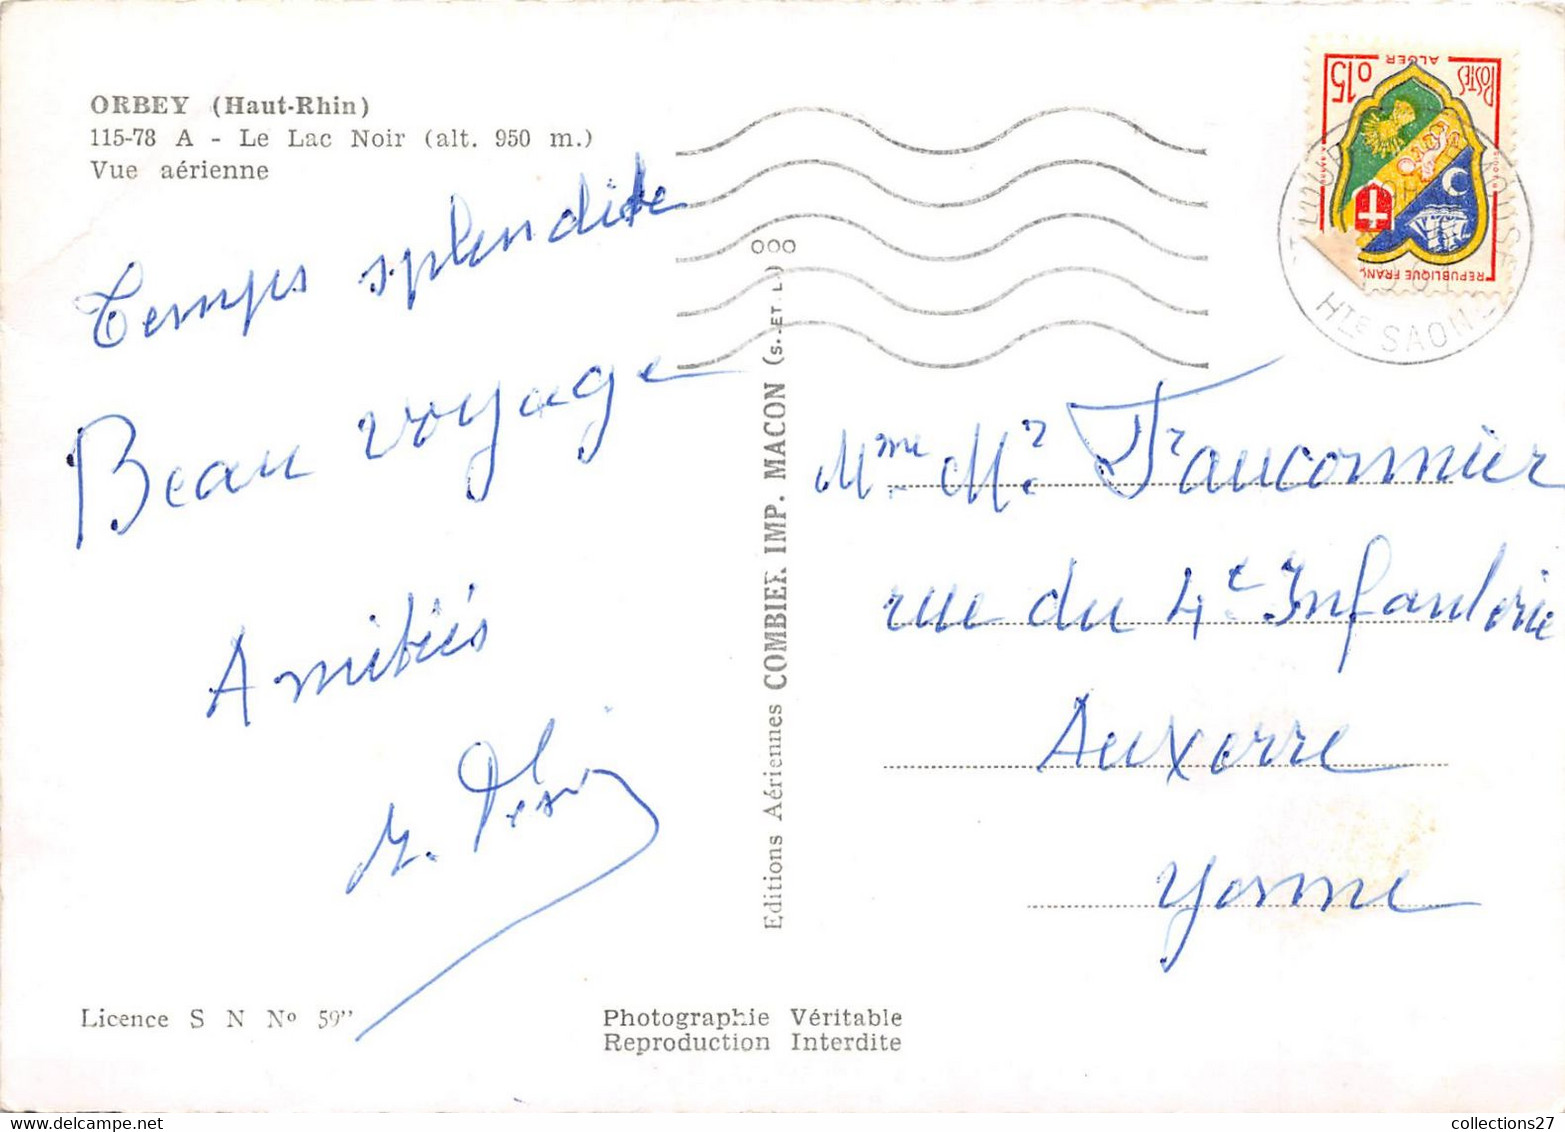 ORBEY (Haut-Rhin)
115-78 A - Le Lac Noir (alt. 950 m.)
Vue aérienne
Temps splendide
Beau voyage
Amitiés
Editions Aériennes COMBIER IMP. MACON (S.-ET L.)
000
POSTES
0,15
ALGER
REPUBLIQUE FRANC
Hte SAONE
Mme Mr Fauconnier
rue du 4e Infanterie
Auxerre
Yonne
Licence S N No 59"
Photographie Véritable
Reproduction Interdite
collections27